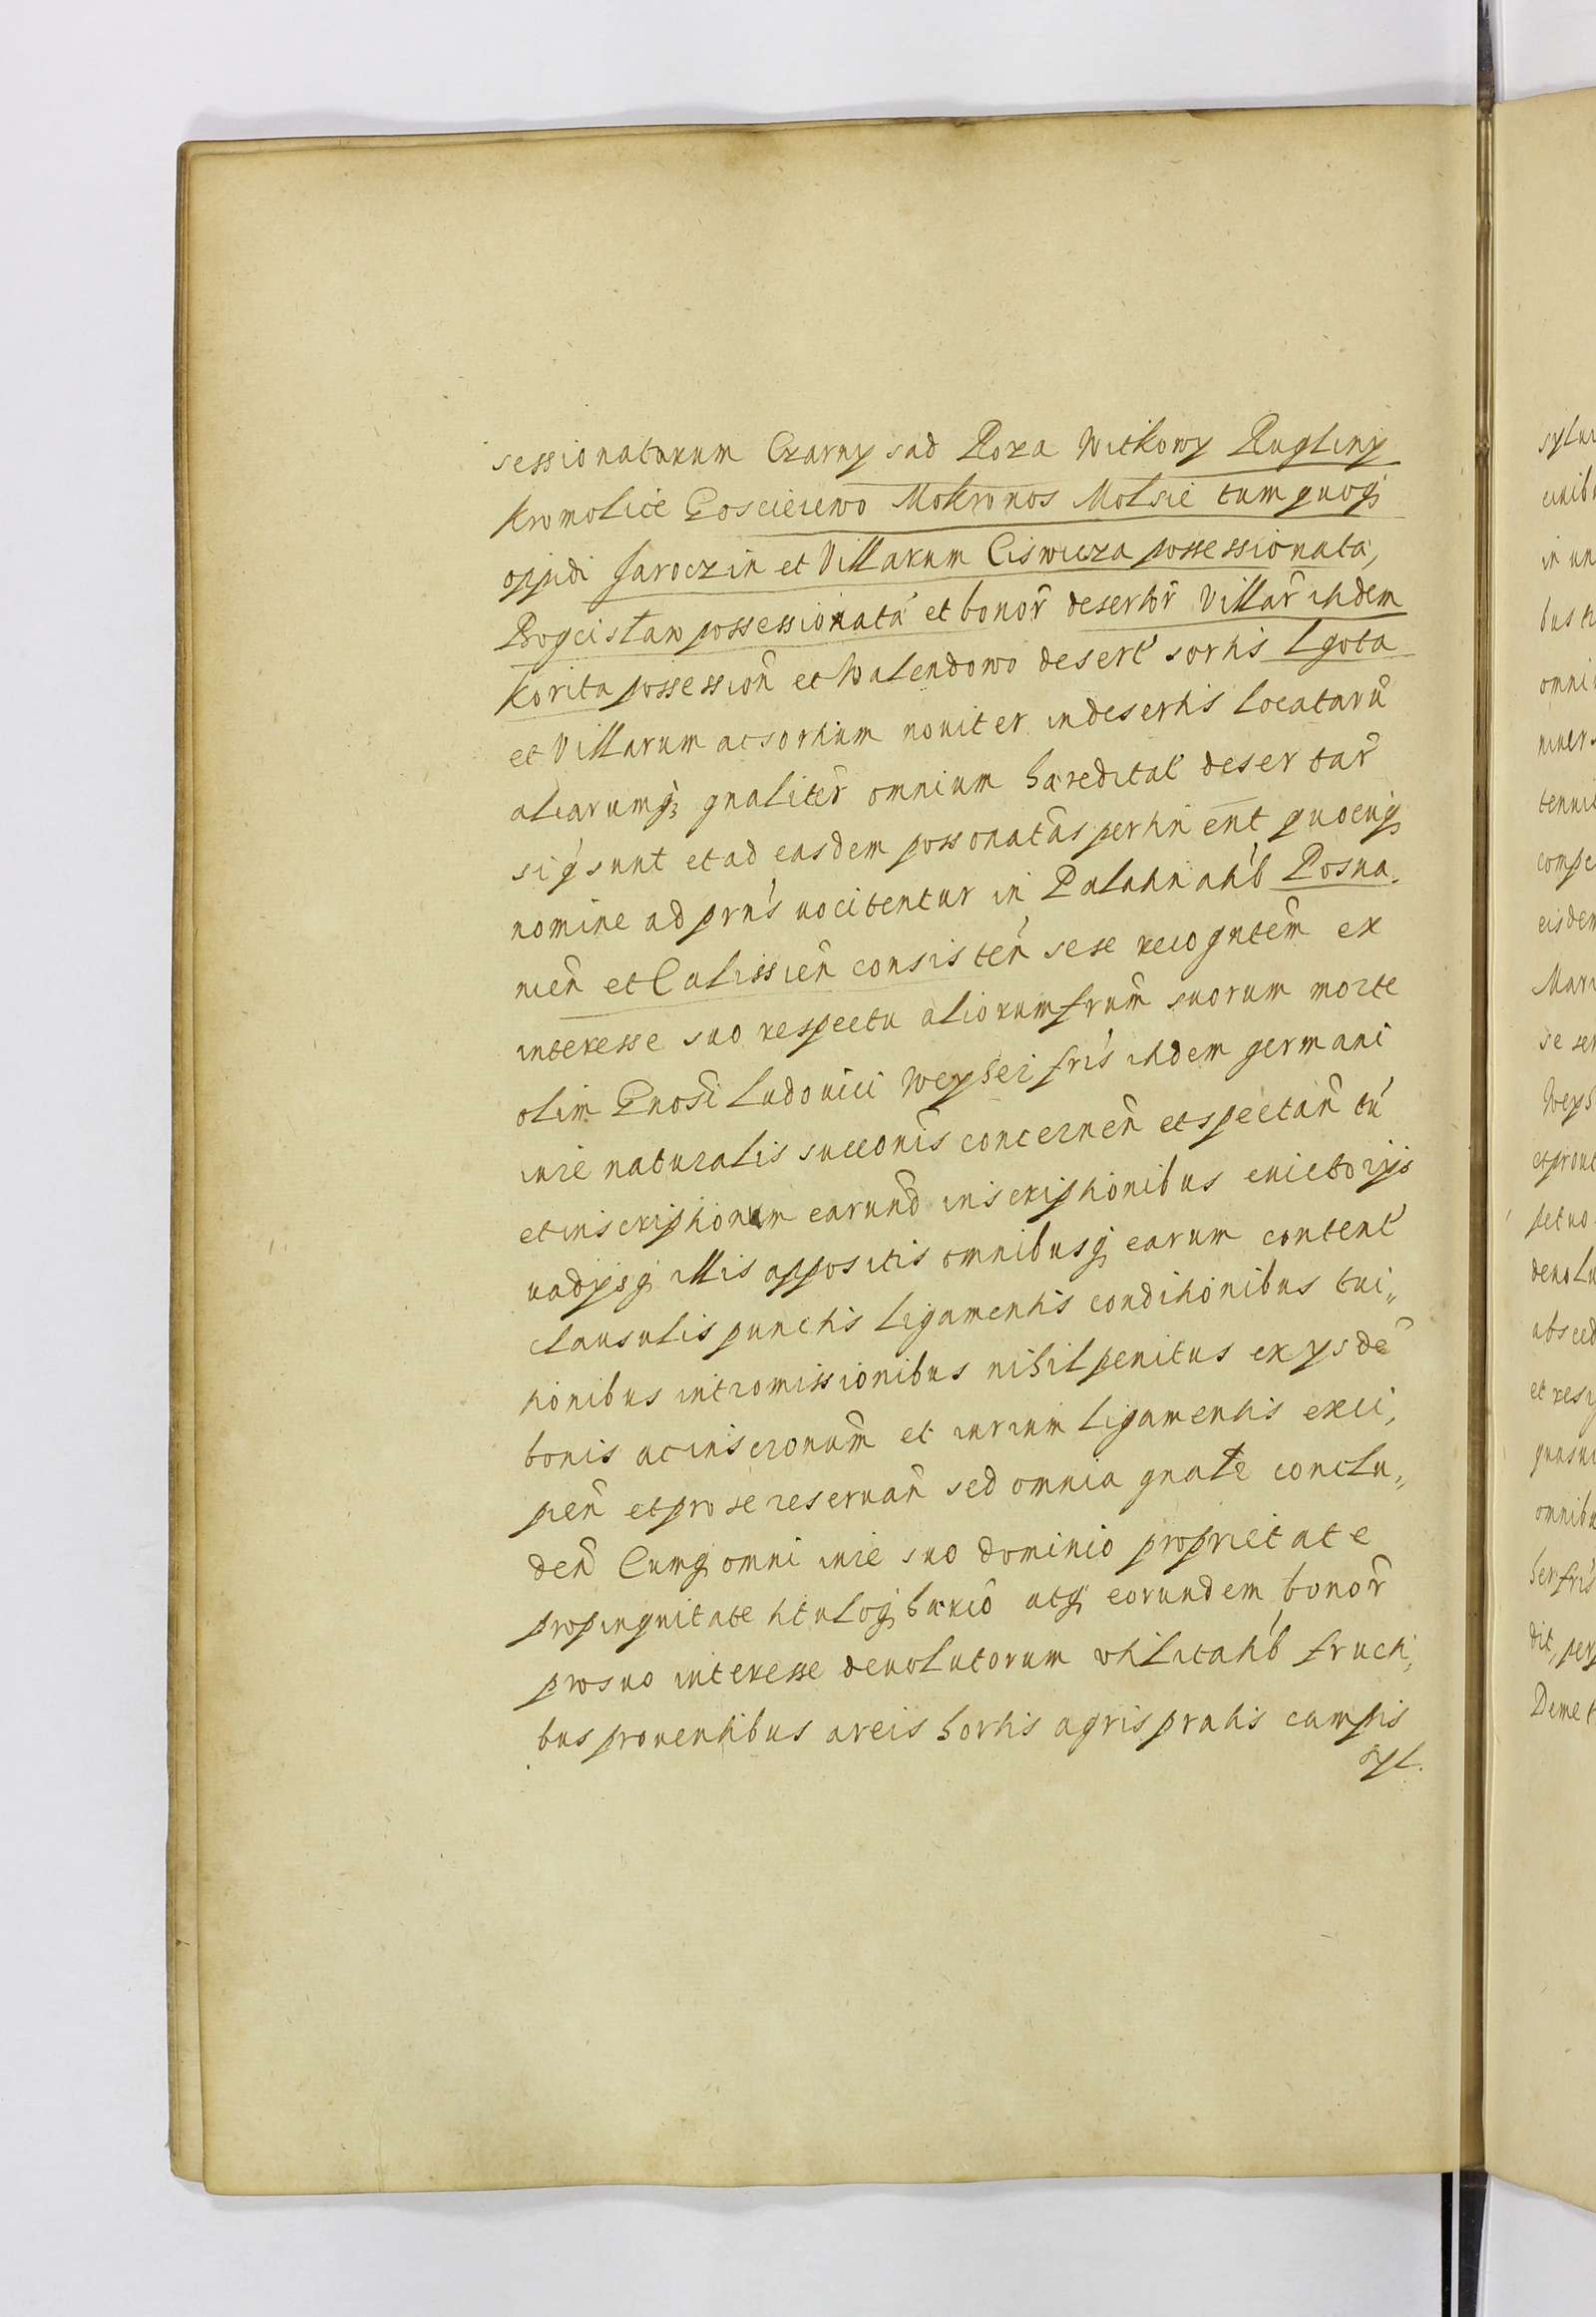 sessionatarum Czarny sad Roza Witkowy Rugliny
Kromolice Gosciejewo Mokronos Molsie tum quoq;
oppidi Jaroczin et Villarum Ciswicza possessionata,
Bogcistaw possessionatá et bonor̃ desertor̃ Villar̃ itidem
Korita possession̄ et Walendowo desert' sortis Lgota
et Villarum ac sortium noviter in desertis locatarū
aliarumq; gnaliter̃ omnium hæreditat' desertar̃
siq sunt et ad easdem possonatas pertin ent quocuq;
nomine ad prńs vocitentur in Palatinatib' Posna-
nień et Calissień consisteń sese recogntem̃ ex
interesse suo respectu aliorum frum̃ suorum morte
olim Gnosi Ludovici Weyher fris itidem germani
iure naturalis succonis concerneń et spectań tú
et inscriptionum earund inscriptionibus evictorijs
vadijsq; illis appositis omnibusq; earum content'
clausulis punctis ligamentis conditionibus tui„
tionibus intromissionibus nihil penitus ex ysdē
bonis ac inscronum̃ et iurium ligamentis exci,
pień et pro se reservań sed omnia gnalr conclu„
deń Cumq; omni iure suo dominio proprietate
propinquitate tituloq; hærio atq; eorundem bonor̃
pro suo interesse devolutorum utilitatib' fructi,
bus proventibus areis hortis agris pratis campis
syl.
sylu
in un
omni
tenuis
compe
eisdem
Mari
se ser
Weyh
et prout
petuo
devolu
absced
et resi
omnib
her fris
dit, perp
Deme